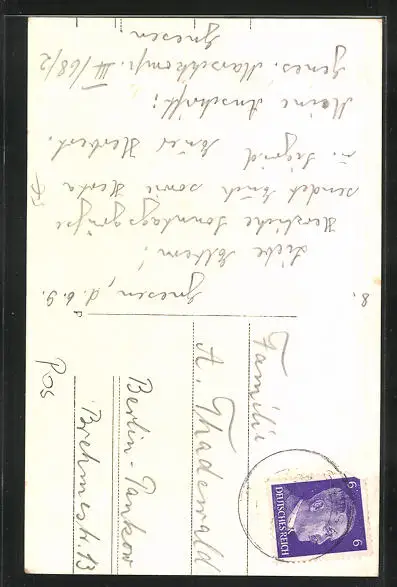 Gnesen, d. 6.9.
Liebe Eltern!
Herzliche Sonntagsgrüße
sendet Euch sowie Herta
u. Sigrid Euer Herbert.
Meine Anschrift:
Genes. Marschkomp. III/68/2
Gnesen
8.
P
Familie
A. Thadewald
Berlin-Pankow
Brehmestr. 13
DEUTSCHES REICH
6
6